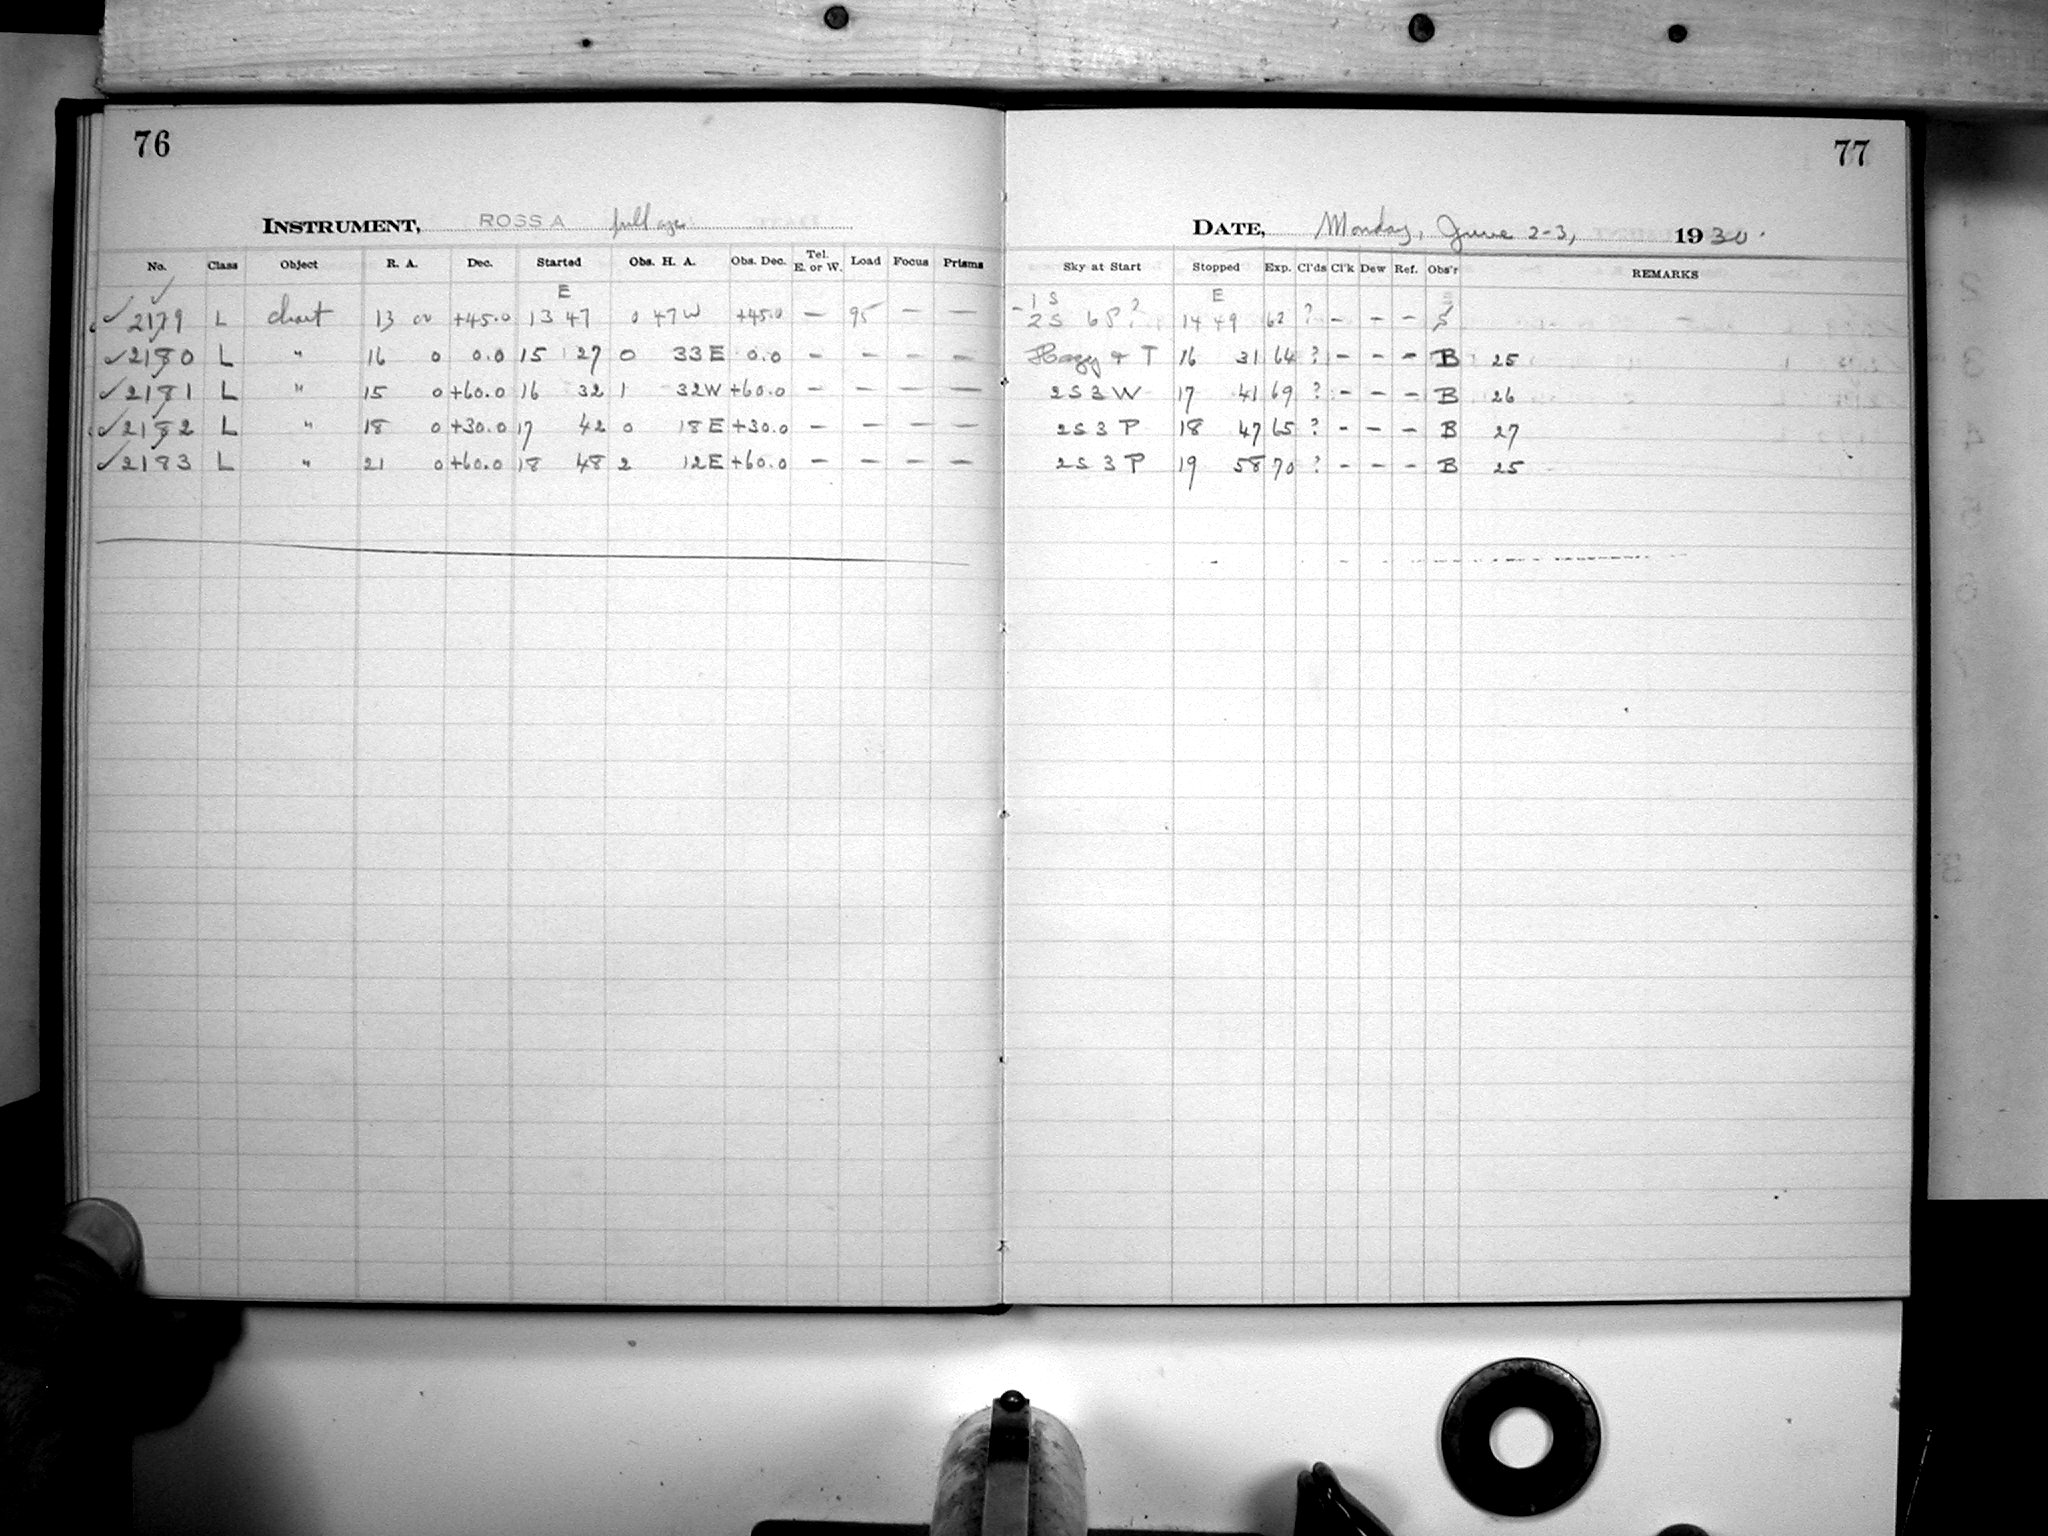 76
INSTRUMENT, ROSS A full age
No. Class Object R. A. Dec. Started Obs. H. A. Obs. Dec. Tel. E. or W. Load Focus Prisms
E
✓ 2179 L chart 13 00 +45.0 13 47 0 47 W +45.0 — 95 — —
✓ 2180 L " 16 0 0.0 15 27 0 33 E 0.0 — — — —
✓ 2181 L " 15 0 +60.0 16 32 1 32 W +60.0 — — — —
✓ 2182 L " 18 0 +30.0 17 42 0 18 E +30.0 — — — —
✓ 2183 L " 21 0 +60.0 18 48 2 12 E +60.0 — — — —
77
DATE, Monday, June 2-3, 1930.
Sky at Start Stopped Exp. Cl'ds Cl'k Dew Ref. Obs'r REMARKS
1 S E
2 S 6 P? 14 49 62 ? — — — S
Hazy + T 16 31 64 ? — — — B 25
2 S 3 W 17 41 69 ? — — — B 26
2 S 3 P 18 47 65 ? — — — B 27
2 S 3 P 19 58 70 ? — — — B 25